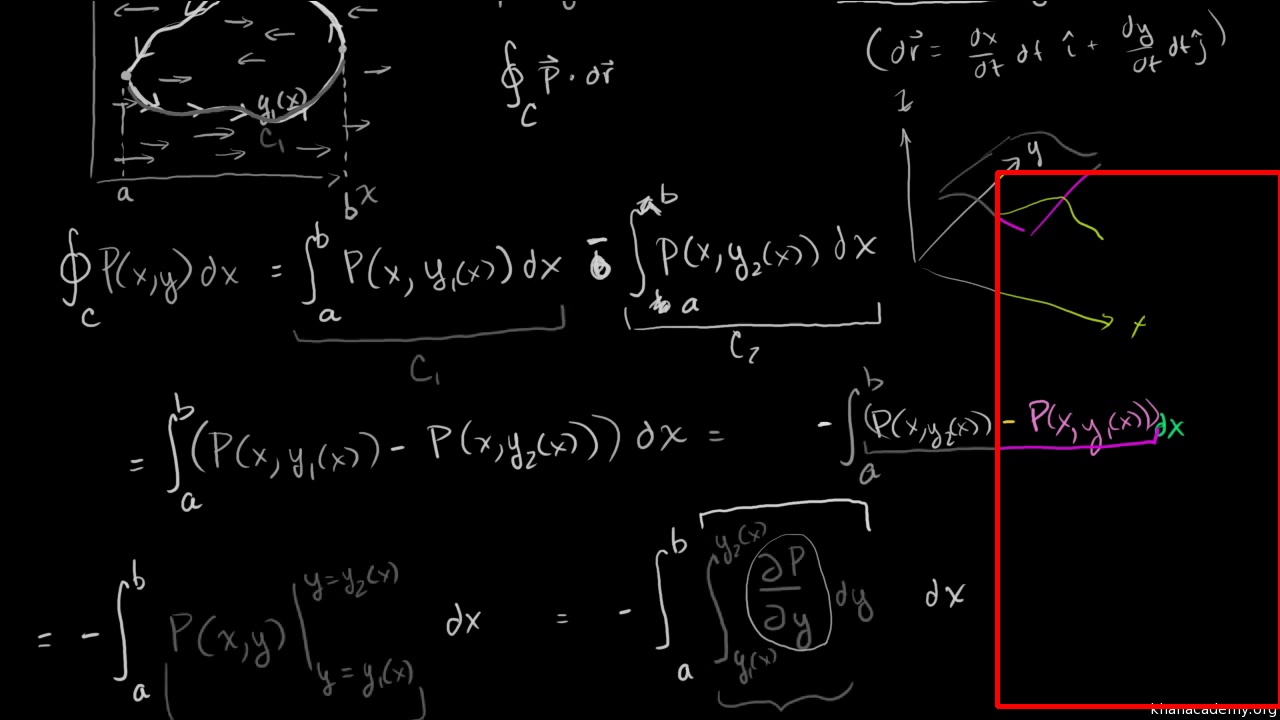 y
(dr⃗ = dx/dt dt î + dy/dt dt ĵ)
∮_C P⃗ · dr⃗
y₁(x)
C₁
a
b x
z
y
x
∮_C P(x,y) dx = ∫_a^b P(x, y₁(x)) dx - ∫_a^b P(x,y₂(x)) dx
C₁
C₂
= ∫_a^b (P(x, y₁(x)) - P(x,y₂(x))) dx = - ∫_a^b (P(x,y₂(x)) - P(x,y₁(x))) dx
= - ∫_a^b P(x,y) |_{y = y₁(x)}^{y = y₂(x)} dx = - ∫_a^b ∫_{y₁(x)}^{y₂(x)} ∂P/∂y dy dx
khanacademy.org